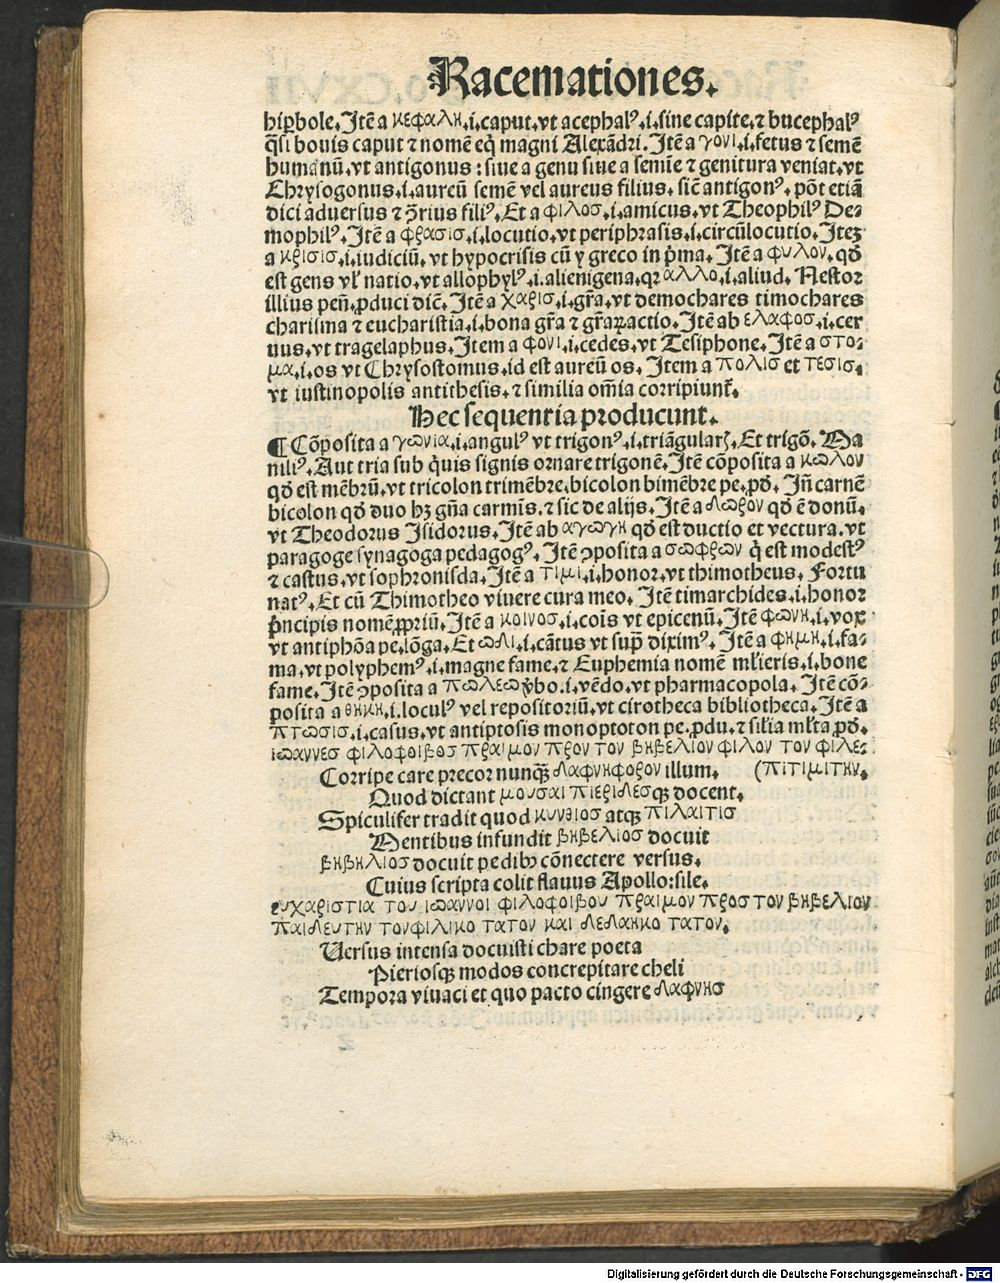 Racemationes.
hiꝑbole. Itē a κεφαλη .i. caput. vt acephalꝰ .i. sine capite. ⁊ bucephalꝰ
q̄si bouis caput ⁊ nomē eq̇ magni Alexādri. Itē a γονι .i. fetus ⁊ semē
humanū. vt antigonus : siue a genu siue a semīe ⁊ genitura veniat. vt
Chrysogonus .i. aureū semē vel aureus filius. sic̄ antigonꝰ. pōt etiā
dici aduersus ⁊ ꝯ̄rius filiꝰ. Et a φιλοσ .i. amicus. vt Theophilꝰ De⸗
mophilꝰ. Itē a φρασισ .i. locutio. vt periphrasis .i. circūlocutio. Iteꝫ
a κρισισ .i. iudiciū. vt hypocrisis cū y greco in p̄ma. Itē a φυλον. qđ
est gens vł natio. vt allophylꝰ .i. alienigena. qꝛ αλλο .i. aliud. Nestor
illius pen̄. ꝓduci dic̄. Itē a χαρισ .i. gr̄a. vt demochares timochares
charisma ⁊ eucharistia .i. bona gr̄a ⁊ gr̄aꝝ actio. Itē ab ελαφοσ .i. cer
uus. vt tragelaphus. Item a φονι .i. cedes. vt Tesiphone. Itē a στο⸗
μα .i. os vt Chrysostomus. id est aureū os. Item a πολισ et τεσισ.
vt iustinopolis antithesis. ⁊ similia om̄ia corripiunt̄.
Hec sequentia producunt.
¶ Cōposita a γωνια .i. angulꝰ vt trigonꝰ .i. triāgularꝭ. Et trigō. Ma
niliꝰ. Aut tria sub q̇uis signis ornare trigonē. Itē cōposita a κωλον
qđ est mēbrū. vt tricolon trimēbre. bicolon bimēbre pe. ꝓđ. Jn̄ carnē
bicolon qđ duo hꝫ gn̄a carmīs. ⁊ sic de alijs. Itē a δωρον qđ ē donū.
vt Theodorus Isidorus. Itē ab αγωγη qđ est ductio et vectura. vt
paragoge synagoga pedagogꝰ. Itē ꝯposita a σωφρων q̇ est modestꝰ
⁊ castus. vt sophronisda. Itē a τιμι .i. honor. vt thimotheus. Fortu
natꝰ. Et cū Thimotheo viuere cura meo. Itē timarchides .i. honor
p̄ncipis nomē ꝓpriū. Itē a κοινοσ .i. cōis vt epicenū. Itē φωνη .i. vox
vt antiphōa pe. lōga. Et ωδι .i. cātus vt sup̄ diximꝰ. Itē a φημη .i. fa⸗
ma. vt polyphemꝰ .i. magne fame. ⁊ Euphemia nomē mƚieris .i. bone
fame. Itē ꝯposita a πωλεω ṽbo .i. vēdo. vt pharmacopola. Itē cō⸗
posita a θηκη .i. loculꝰ vel repositoriū. vt cirotheca bibliotheca. Itē a
πτωσισ .i. casus. vt antiptosis monoptoton pe. ꝓdu. ⁊ siƚia mƚta ꝓđ.
ιωαννεσ φιλοφοιβοσ πραιμον προν τον βηβελιον φιλον τον φιλε⸗
Corripe care precor nunq̃ꝫ δαφνηφορον illum. (πιτιμιτην.
Quod dictant μουσαι πιεριδεσqꝫ docent.
Spiculifer tradit quod κυνθιοσ atqꝫ πιλαιτισ
Mentibus infundit βηβελιοσ docuit
βηβηλιοσ docuit pedibꝫ cōnectere versus.
Cuius scripta colit flauus Apollo : sile.
ευχαριστια του ιωαννοι φιλοφοιβου πραιμον προσ τον βηβελιον
παιδευτην τον φιλικο τατον και δεδαηκο τατον.
Versus intensa docuisti chare poeta
Pieriosqꝫ modos concrepitare cheli
Tempora viuaci et quo pacto cingere δαφνησ
Digitalisierung gefördert durch die Deutsche Forschungsgemeinschaft - DFG